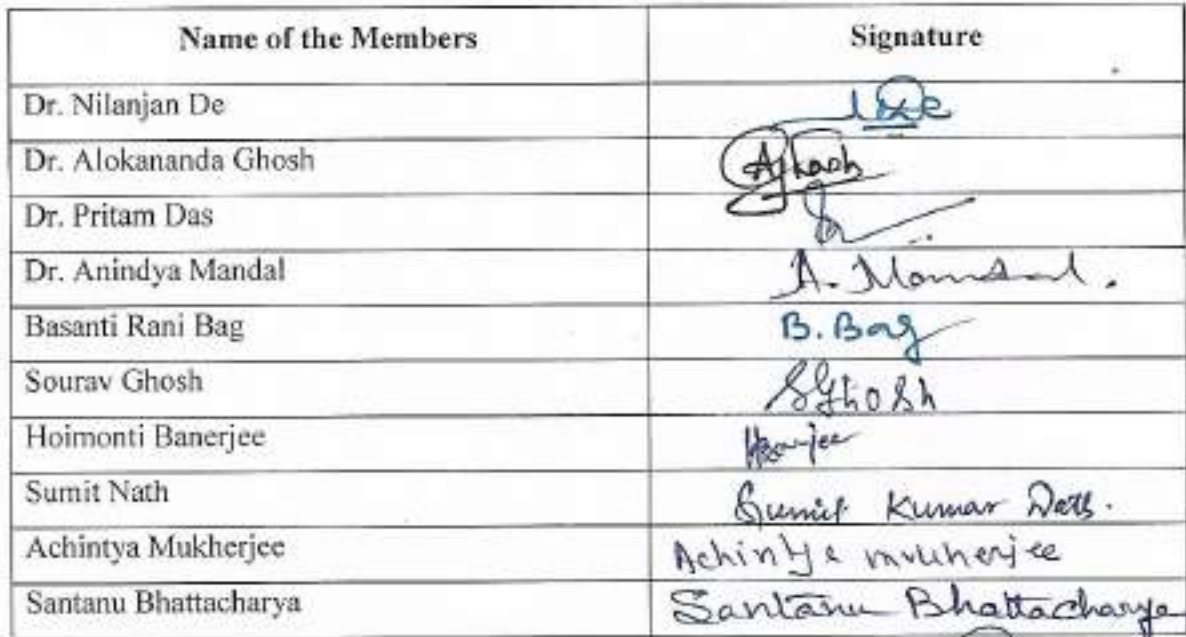 Name of the Members Signature
Dr. Nilanjan De
Dr. Alokananda Ghosh AGhosh
Dr. Pritam Das
Dr. Anindya Mandal A. Mandal.
Basanti Rani Bag B. Bag
Sourav Ghosh SGhosh
Hoimonti Banerjee HBanerjee
Sumit Nath Sumit Kumar Nath.
Achintya Mukherjee Achintya mukherjee
Santanu Bhattacharya Santanu Bhattacharya